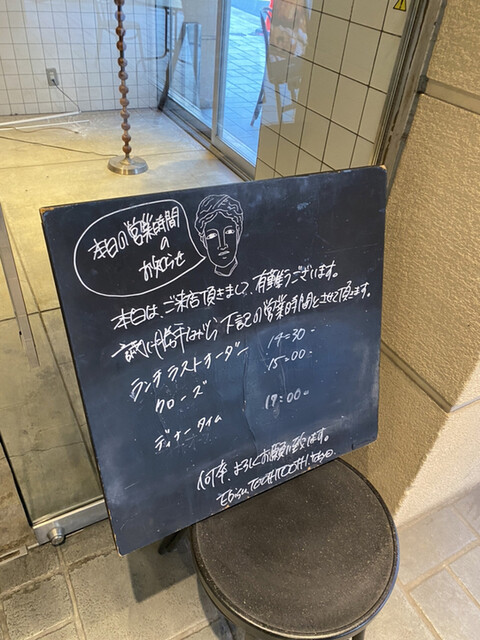 本日の営業時間
の
お知らせ
本日は、ご来店頂きまして、有難うございます。
誠に勝手ながら、下記の営業時間とさせて頂きます。
ランチラストオーダー 14:30-
クローズ 15:00-
ディナータイム 17:00-
何卒、よろしくお願い致します。
Ebisu